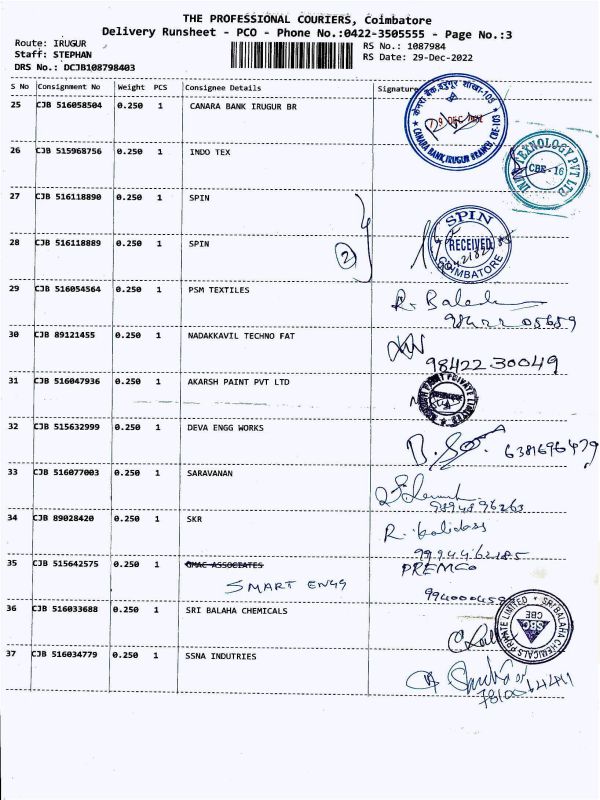 THE PROFESSIONAL COURIERS, Coimbatore
Delivery Runsheet - PCO - Phone No.:0422-3505555 - Page No.:3
Route: IRUGUR
Staff: STEPHAN
DRS No.: DCJB108798403
RS No.: 1087984
RS Date: 29-Dec-2022
S No Consignment No Weight PCS Consignee Details Signature
25 CJB 516058504 0.250 1 CANARA BANK IRUGUR BR
CANARA BANK, IRUGUR BRANCH, CBE-103
26 CJB 515968756 0.250 1 INDO TEX
TEXNOLOGY PVT LTD
CBE-16
27 CJB 516118890 0.250 1 SPIN
28 CJB 516118889 0.250 1 SPIN
2
SPIN
RECEIVED
COIMBATORE
29 CJB 516054564 0.250 1 PSM TEXTILES
30 CJB 89121455 0.250 1 NADAKKAVIL TECHNO FAT
98422 30049
31 CJB 516047936 0.250 1 AKARSH PAINT PVT LTD
32 CJB 515632999 0.250 1 DEVA ENGG WORKS
6381696479
33 CJB 516077003 0.250 1 SARAVANAN
9894896263
34 CJB 89028420 0.250 1 SKR
R. Kalidass
9994462185
35 CJB 515642575 0.250 1 GMAC ASSOCIATES
SMART ENGG
PREMCO
36 CJB 516033688 0.250 1 SRI BALAHA CHEMICALS
SRI BALAHA CHEMICALS PRIVATE LIMITED
SBC
CBE
37 CJB 516034779 0.250 1 SSNA INDUTRIES